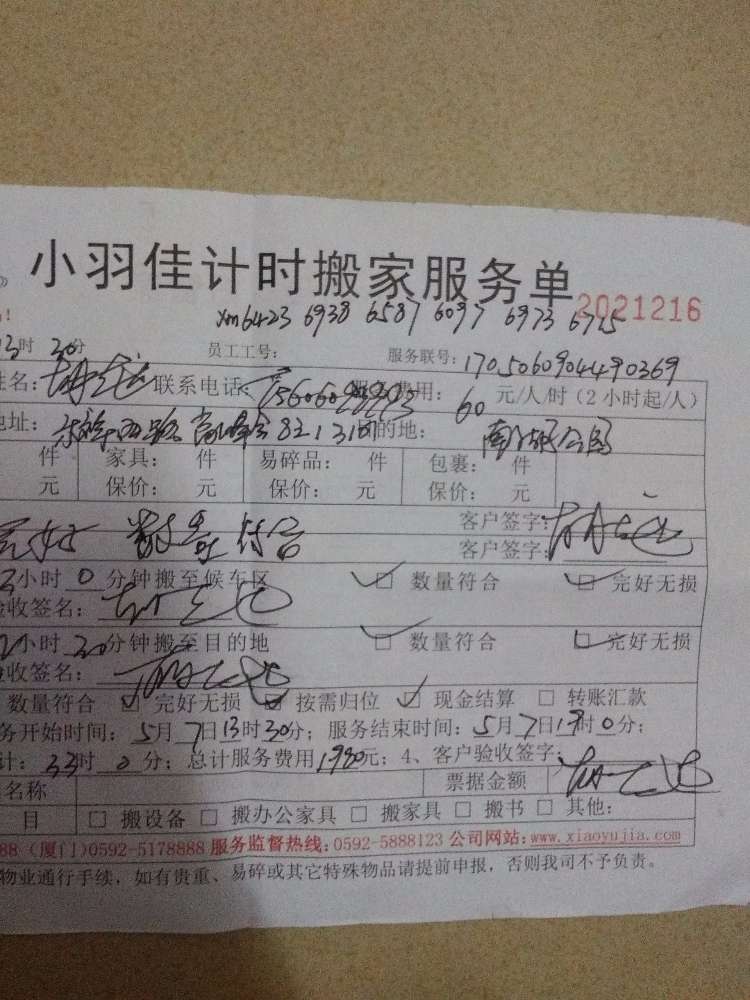 小羽佳计时搬家服务单
2021216
xm6423 6938 6587 6097 6973 6725
13时30分 员工工号: 服务联号: 1705060904490369
姓名: 联系电话: 费用: 60 元/人/时（2小时起/人）
地址: 目的地: 南湖公寓
件 家具: 件 易碎品: 件 包裹: 件
元 保价: 元 保价: 元 保价: 元
完好 数量符合 客户签字:
客户签字:
小时 0 分钟搬至候车区 数量符合 完好无损
验收签名:
小时 30 分钟搬至目的地 数量符合 完好无损
验收签名:
数量符合 完好无损 按需归位 现金结算 转账汇款
务开始时间: 5月7日13时30分; 服务结束时间: 5月7日19时0分;
计: 33时0分; 总计服务费用1980元; 4、客户验收签字:
名称 票据金额
目 搬设备 搬办公家具 搬家具 搬书 其他:
88 (厦门)0592-5178888 服务监督热线: 0592-5888123 公司网站: www.xiaoyujia.com
物业通行手续，如有贵重、易碎或其它特殊物品请提前申报，否则我司不予负责。